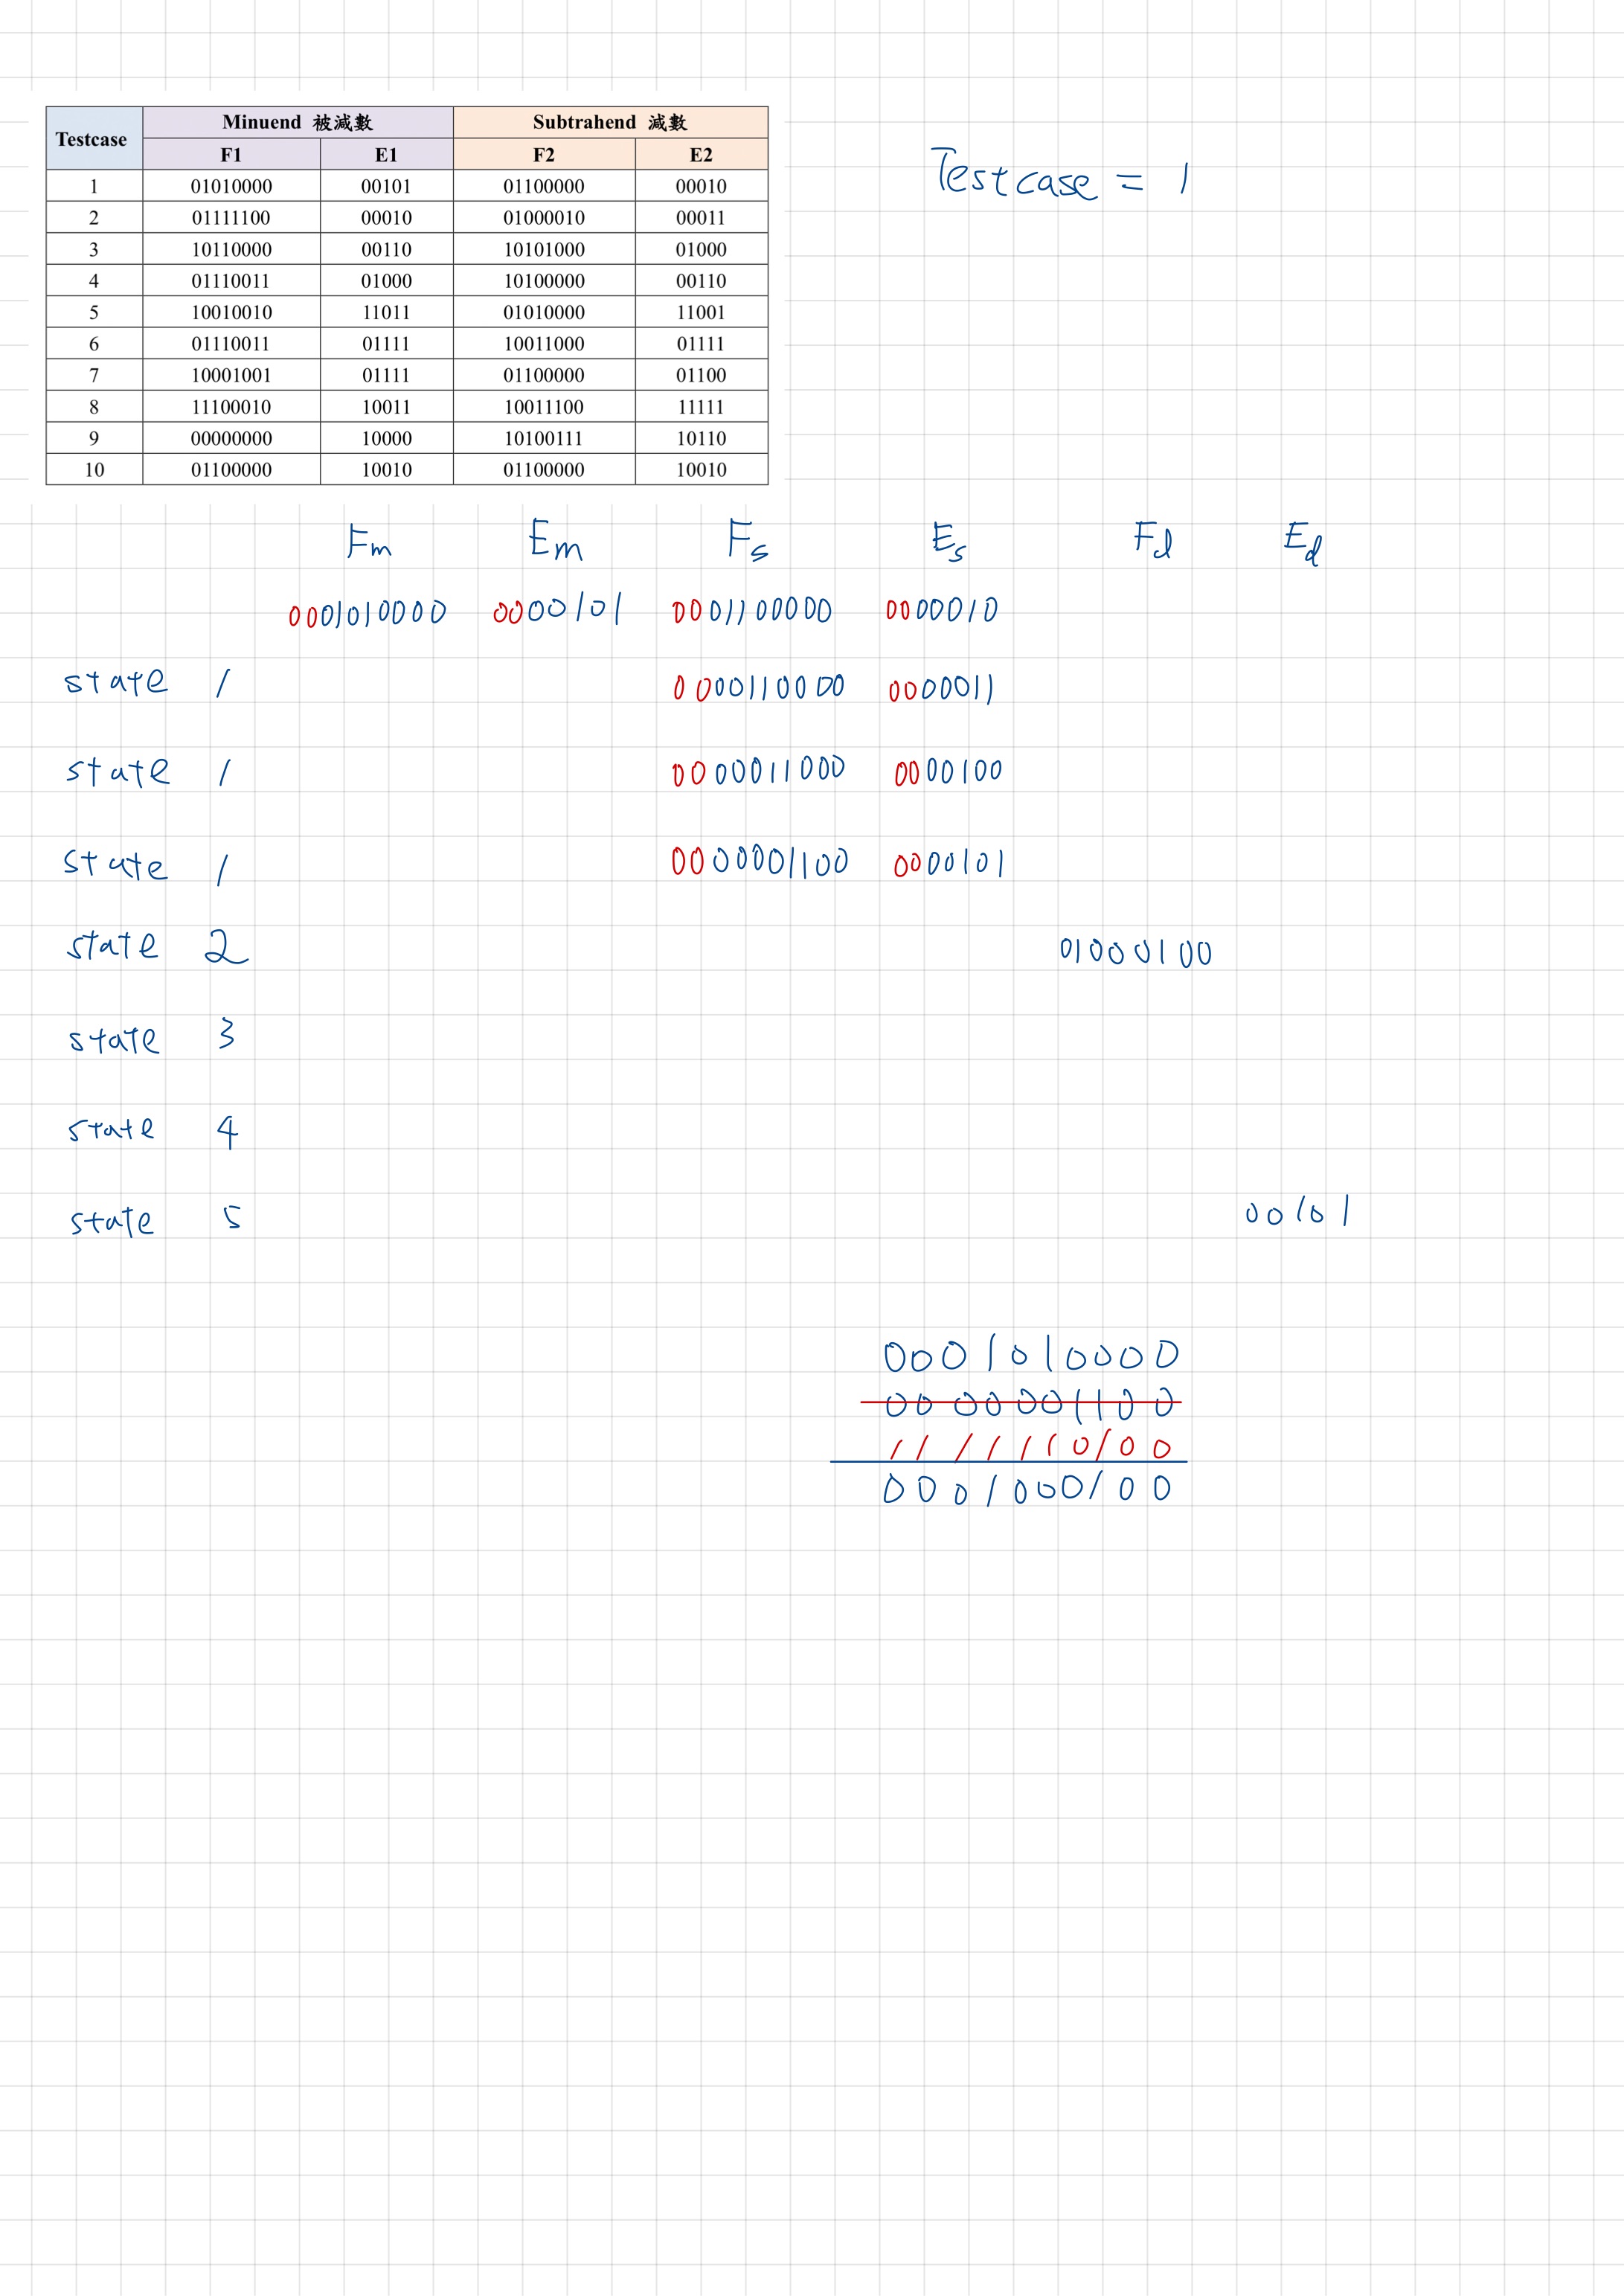 Testcase Minuend 被減數 Subtrahend 減數
F1 E1 F2 E2
1 01010000 00101 01100000 00010
2 01111100 00010 01000010 00011
3 10110000 00110 10101000 01000
4 01110011 01000 10100000 00110
5 10010010 11011 01010000 11001
6 01110011 01111 10011000 01111
7 10001001 01111 01100000 01100
8 11100010 10011 10011100 11111
9 00000000 10000 10100111 10110
10 01100000 10010 01100000 10010
Testcase = 1
Fm Em Fs Es Fd Ed
0001010000 0000101 0001100000 0000010
state 1 0000110000 0000011
state 1 0000011000 0000100
state 1 0000001100 0000101
state 2 01000100
state 3
state 4
state 5 00101
0001010000
0000001100
1111110100
0001000100